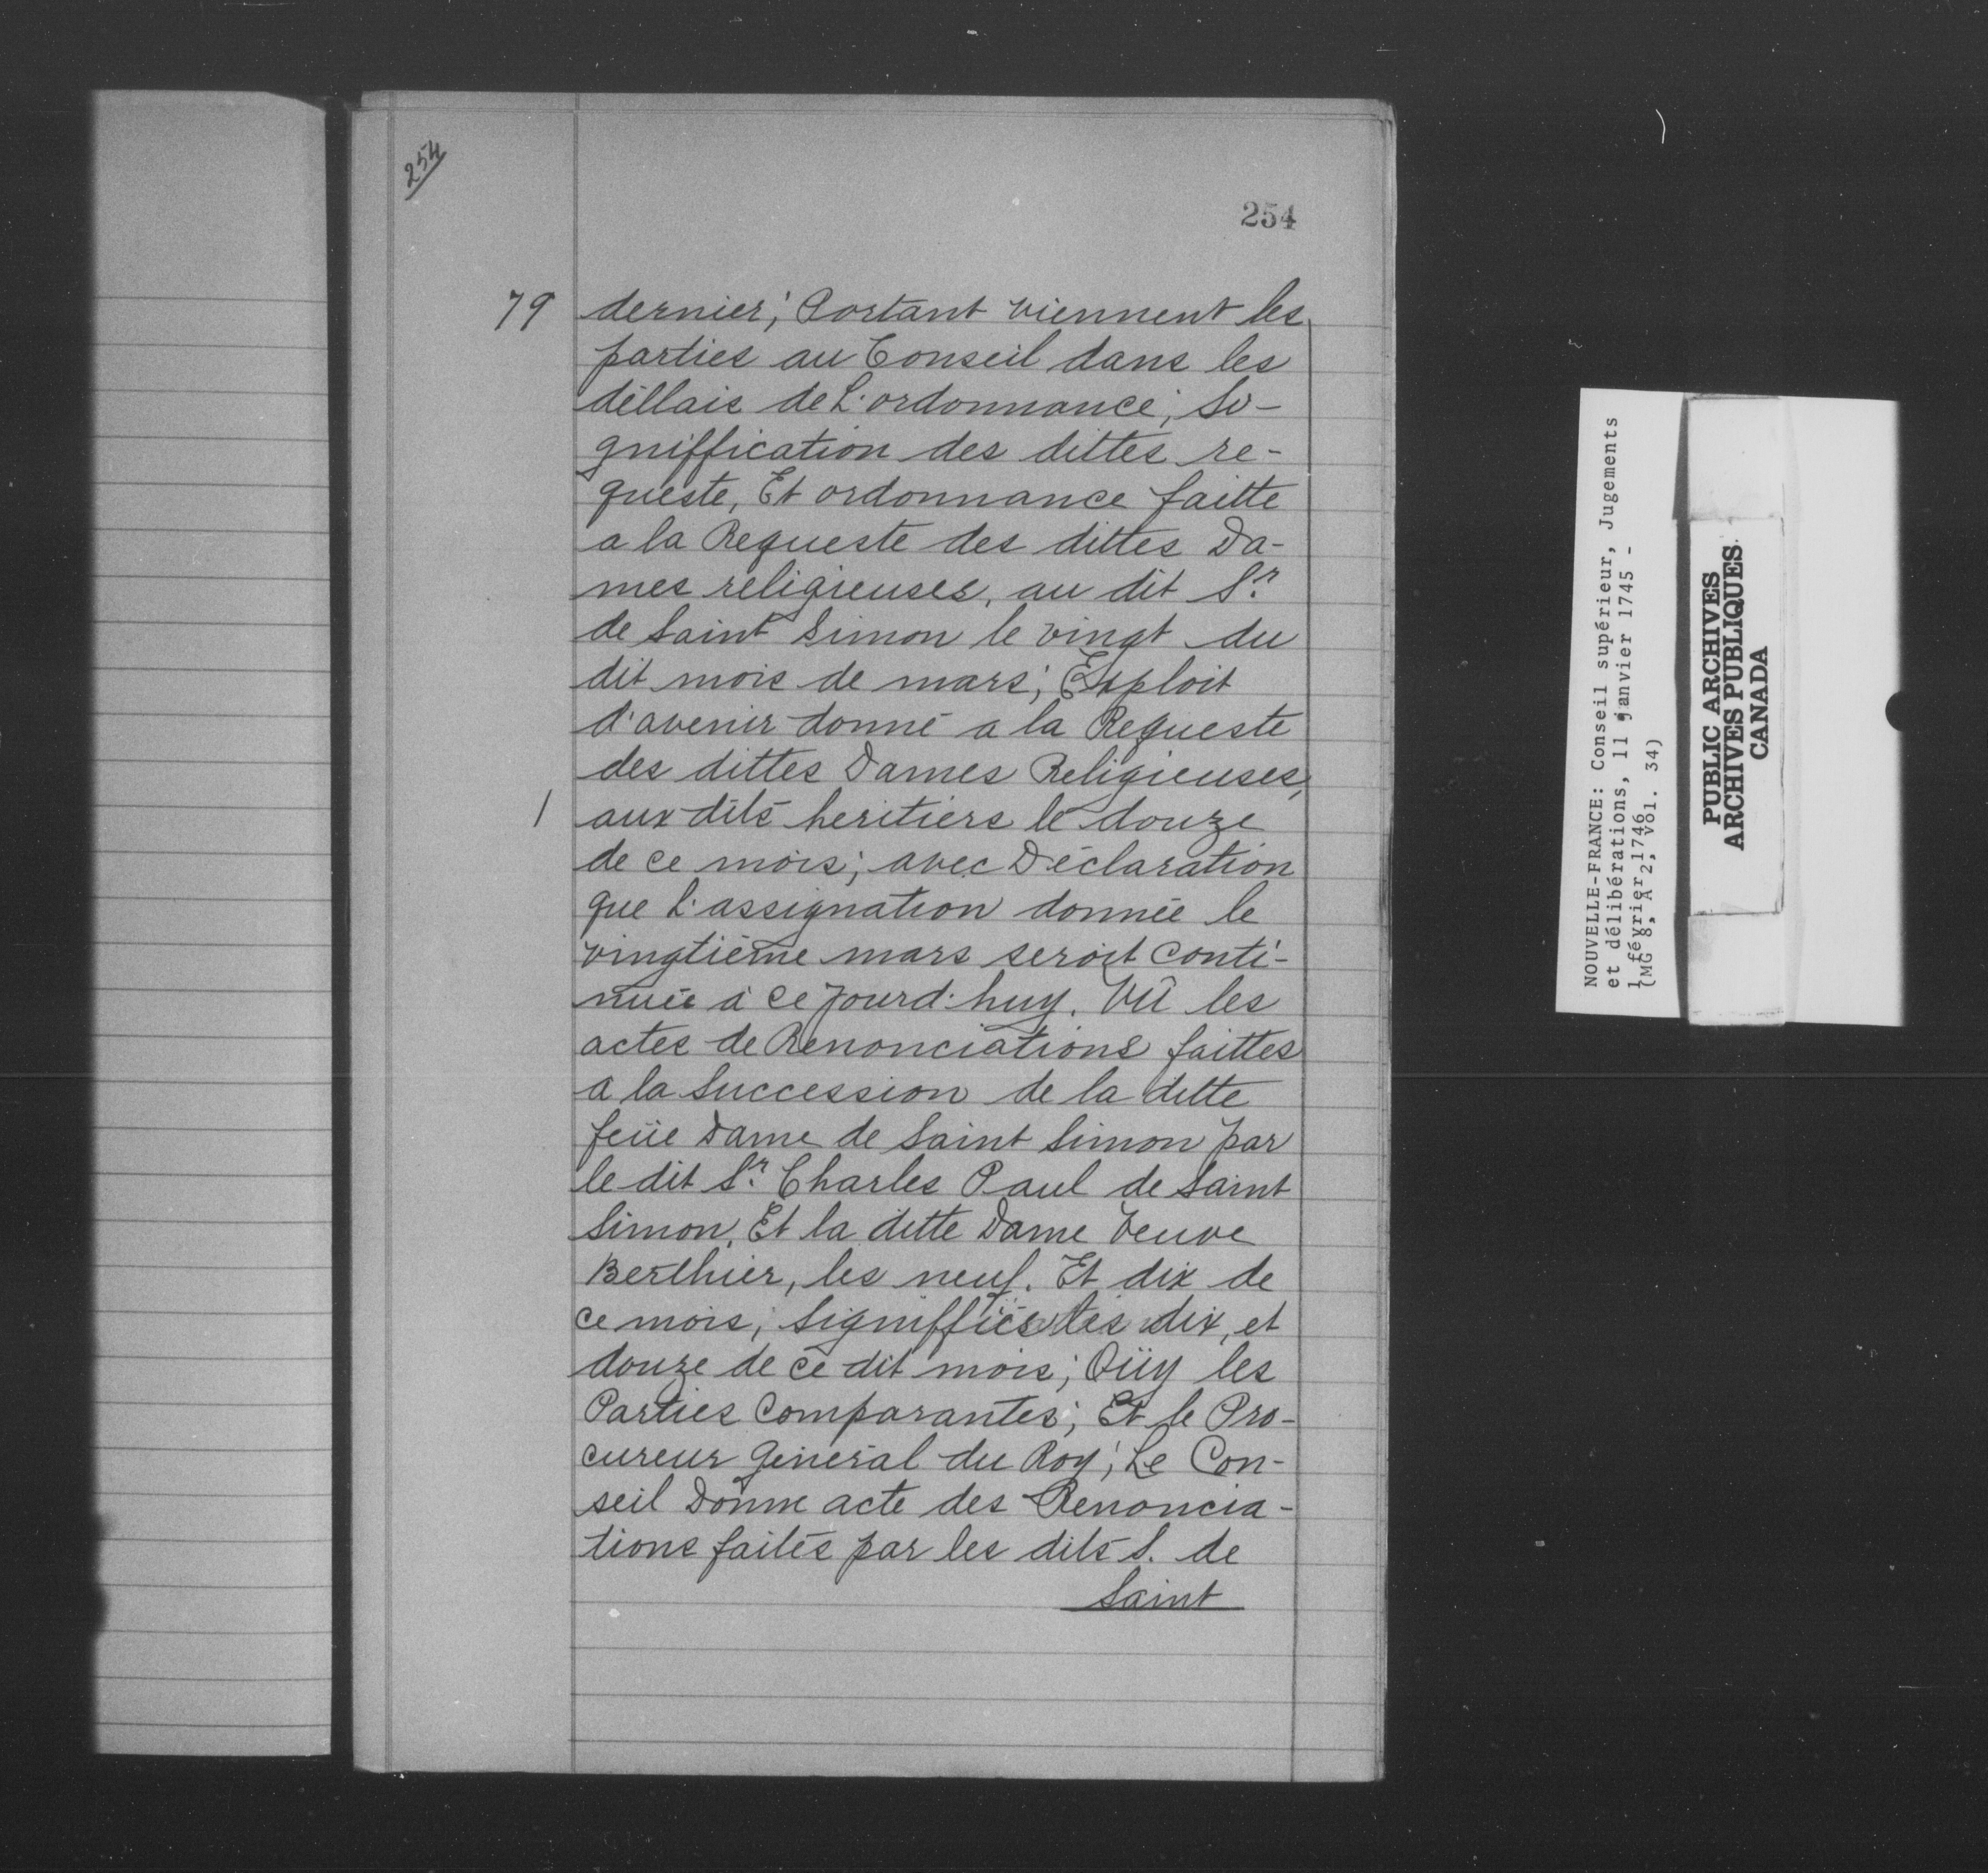 254
254
79 dernier; Portant viennent les
parties au Conseil dans les
déllais de L'ordonnance; Si-
gniffication des dittes re-
queste, Et ordonnance faitte
a la Requeste des dittes Da-
mes religieuses, au dit Sr.
de Saint Simon le vingt du
dit mois de mars; Exploit
d'avenir donné a la Requeste
des dittes Dames Religieuses,
/ aux dits heritiers le douze
de ce mois; avec Déclaration
que L'assignation donnée le
vingtième mars seroit conti-
nuée à ce jourd'huy. Vû les
actes de Renonciations faittes
a la Succession de la ditte
feüe Dame de Saint Simon par
le dit Sr. Charles Paul de Saint
Simon, Et la ditte Dame Veuve
Berthier, les neuf. Et dix de
ce mois; signiffiés les dix, et
douze de ce dit mois; Oüy les
Parties Comparantes; Et le Pro-
cureur Général du Roy; Le Con-
seil Donne acte des Renoncia-
tions faites par les dits S. de
Saint
NOUVELLE-FRANCE: Conseil supérieur, Jugements
et délibérations, 11 janvier 1745 -
1 février 1746
(MG 8, A 2, vol. 34)
PUBLIC ARCHIVES
ARCHIVES PUBLIQUES
CANADA